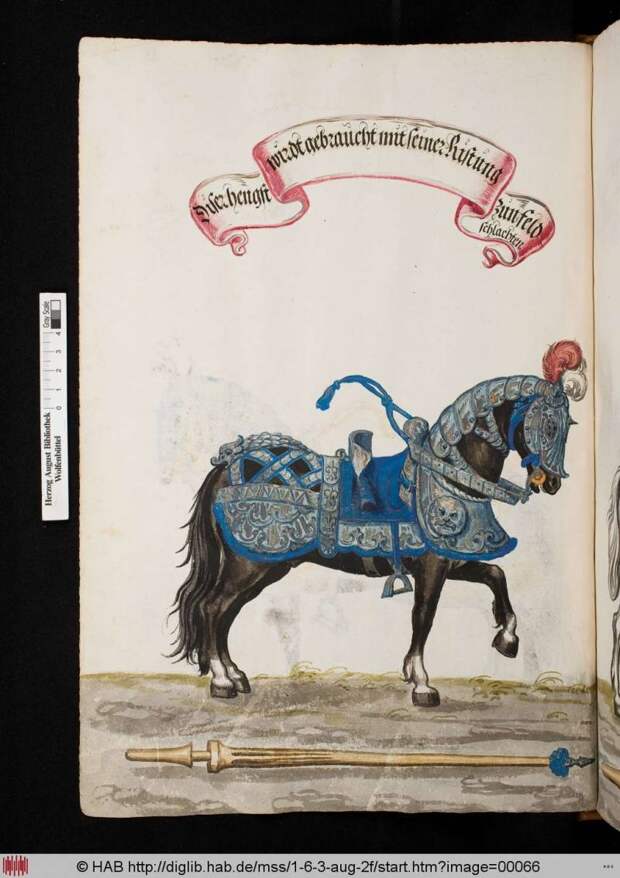 Diser hengst
wirdt gebraucht mit seiner Ristung
Zun feld
schlachten
Herzog August Bibliothek
Wolfenbüttel
Gray Scale
0 1 2 3 4
© HAB http://diglib.hab.de/mss/1-6-3-aug-2f/start.htm?image=00066